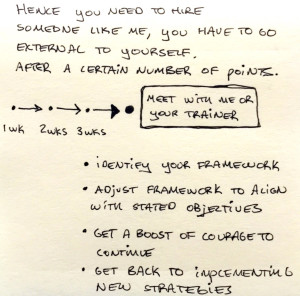 HENCE YOU NEED TO HIRE
SOMEONE LIKE ME, YOU HAVE TO GO
EXTERNAL TO YOURSELF.
AFTER A CERTAIN NUMBER OF POINTS.
MEET WITH ME OR
YOUR TRAINER
1WK 2WKS 3WKS
• IDENTIFY YOUR FRAMEWORK
• ADJUST FRAMEWORK TO ALIGN
WITH STATED OBJECTIVES
• GET A BOOST OF COURAGE TO
CONTINUE
• GET BACK TO IMPLEMENTING
NEW STRATEGIES